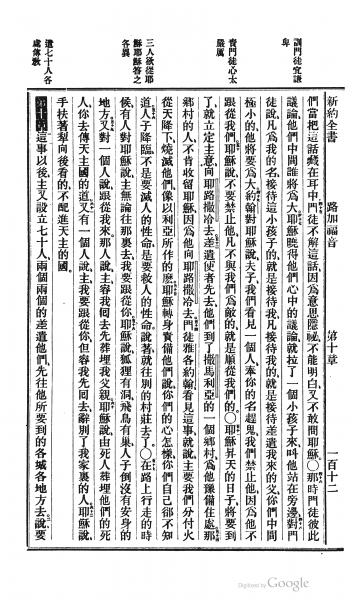 新約全書
路加福音
第十章
一百十二
訓門徒究謙
卑
責門徒心太
嚴厲
三人欲從耶
穌耶穌答之
各異
遣七十人各
處傳教
們當把這話藏在耳中門徒不解這話因爲意思隱祕不能明白又不敢問耶穌〇那時門徒彼此
議論他們中間誰將爲大耶穌曉得他們心中的議論就拉了一個小孩子來叫他站在旁邊對門
徒說凡爲我的名接待這小孩子的就是接待我凡接待我的就是接待差遣我來的父你們中間
極小的他將要爲大約翰對耶穌說夫子我們看見一個人奉你的名趕鬼我們禁止他因爲他不
跟從我們耶穌說不要禁止他凡不與我們爲敵的就是順從我們的〇耶穌昇天的日子將要到
了就立定主意向耶路撒冷去差遣使者先去他們到了撒馬利亞的一個鄉村爲他豫備住處那
鄉村的人不肯收留耶穌因爲他向耶路撒冷去門徒雅各約翰看見這事就說主要我們分付火
從天降下燒滅他們像以利亞所作的麼耶穌轉身責備他們說你們的心怎樣你們自己卻不知
道人子降臨不是要滅人的性命是要救人的性命說著就往別的村莊去了〇在路上行走的時
候有人對耶穌說主無論往那裏去我要跟從你耶穌說狐狸有洞飛鳥有巢人子倒沒有安身的
地方又對一個人說跟從我來那人說主容我囘去先葬埋我父親耶穌說由死人葬埋他們的死
人你去傳天主國的道又有一個人說主我要跟從你但容我先囘去辭別了我家裏的人耶穌說
手扶著犁向後看的不配進天主的國
第十章這事以後主又設立七十人兩個兩個的差遣他們先往他所要到的各城各地方去說要
Digitized by Google